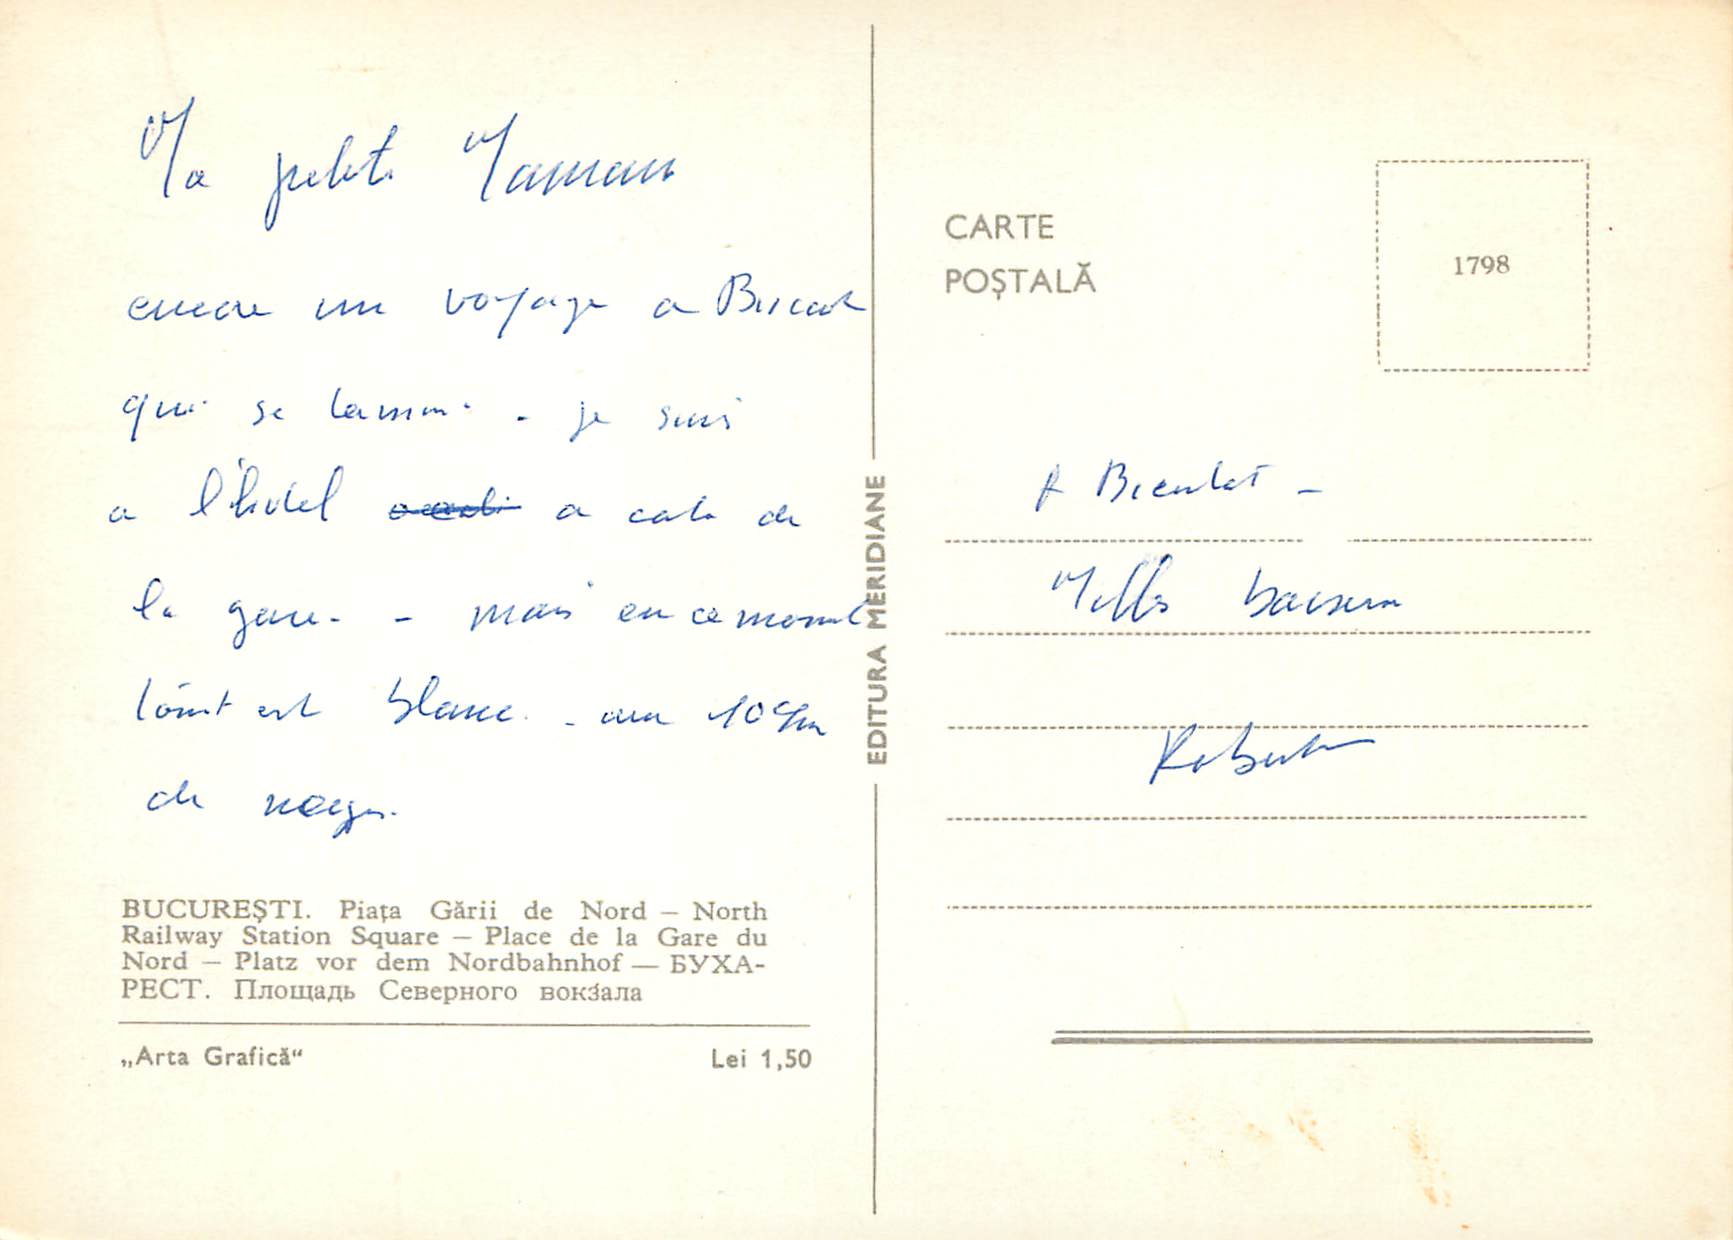 Ma petite Maman
encore un voyage a Bucarest
qui se termine - je suis
a l'hotel a cote de
la gare - mais en ce moment
tout est blanc - au 10 cm
de neige.
BUCUREȘTI. Piața Gării de Nord — North
Railway Station Square — Place de la Gare du
Nord — Platz vor dem Nordbahnhof — БУХА-
РЕСТ. Площадь Северного вокзала
„Arta Grafică“ Lei 1,50
EDITURA MERIDIANE
CARTE
POȘTALĂ
1798
A Bientot -
Milles baisers
Robert